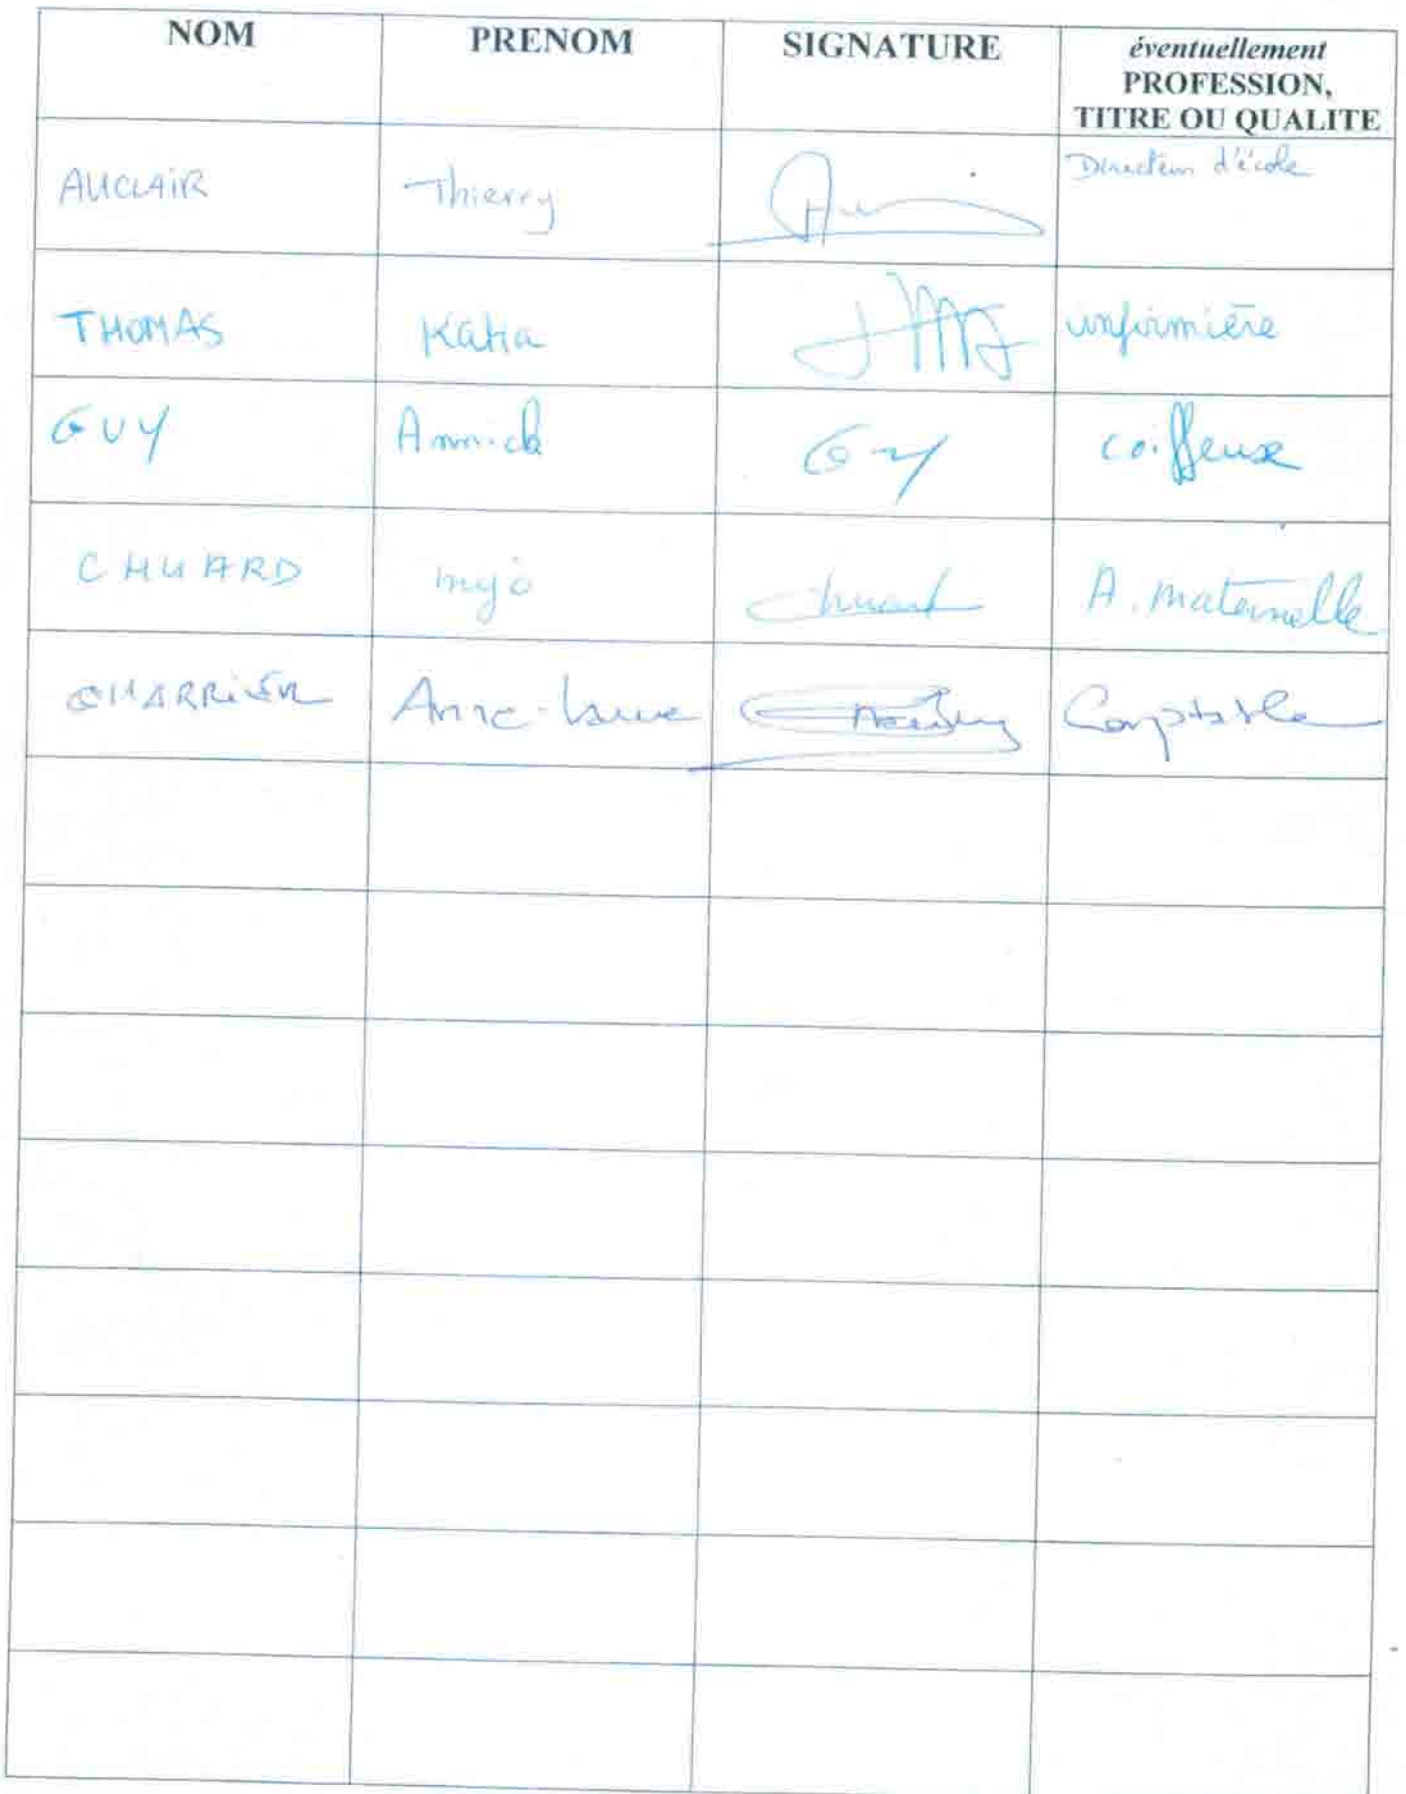 NOM PRENOM SIGNATURE éventuellement
PROFESSION,
TITRE OU QUALITE
AUCLAIR Thierry Directeur d'école
THOMAS Katia infirmière
GUY Annick Guy coiffeuse
CHUARD myjo chuard A. maternelle
CHARRIER Anne-Laure Comptable